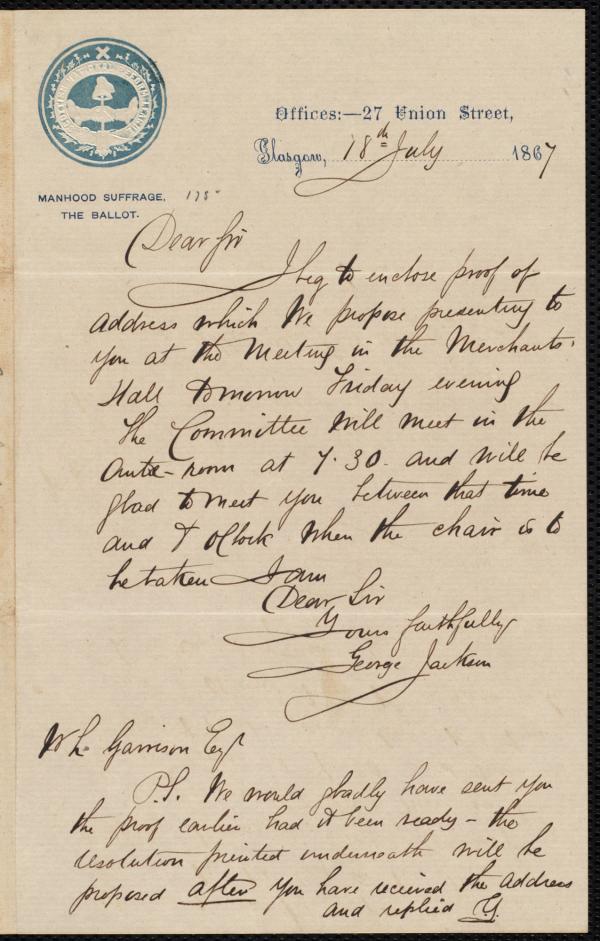 Offices:—27 Union Street,
Glasgow, 18th July 1867
MANHOOD SUFFRAGE,
THE BALLOT.
Dear Sir
I beg to enclose proof of
Address which We propose presenting to
you at the Meeting in the Merchants'
Hall tomorrow Friday evening
The Committee Will meet in the
Ante-room at 7.30. and will be
glad to meet you between that time
and 8 oClock When the chair is to
be taken I am
Dear Sir
Yours faithfully
George Jackson
Wm L. Garrison Esqr
P.S. We would gladly have sent you
the proof earlier had it been ready – the
resolution printed underneath will be
proposed after you have recieved the address
and replied